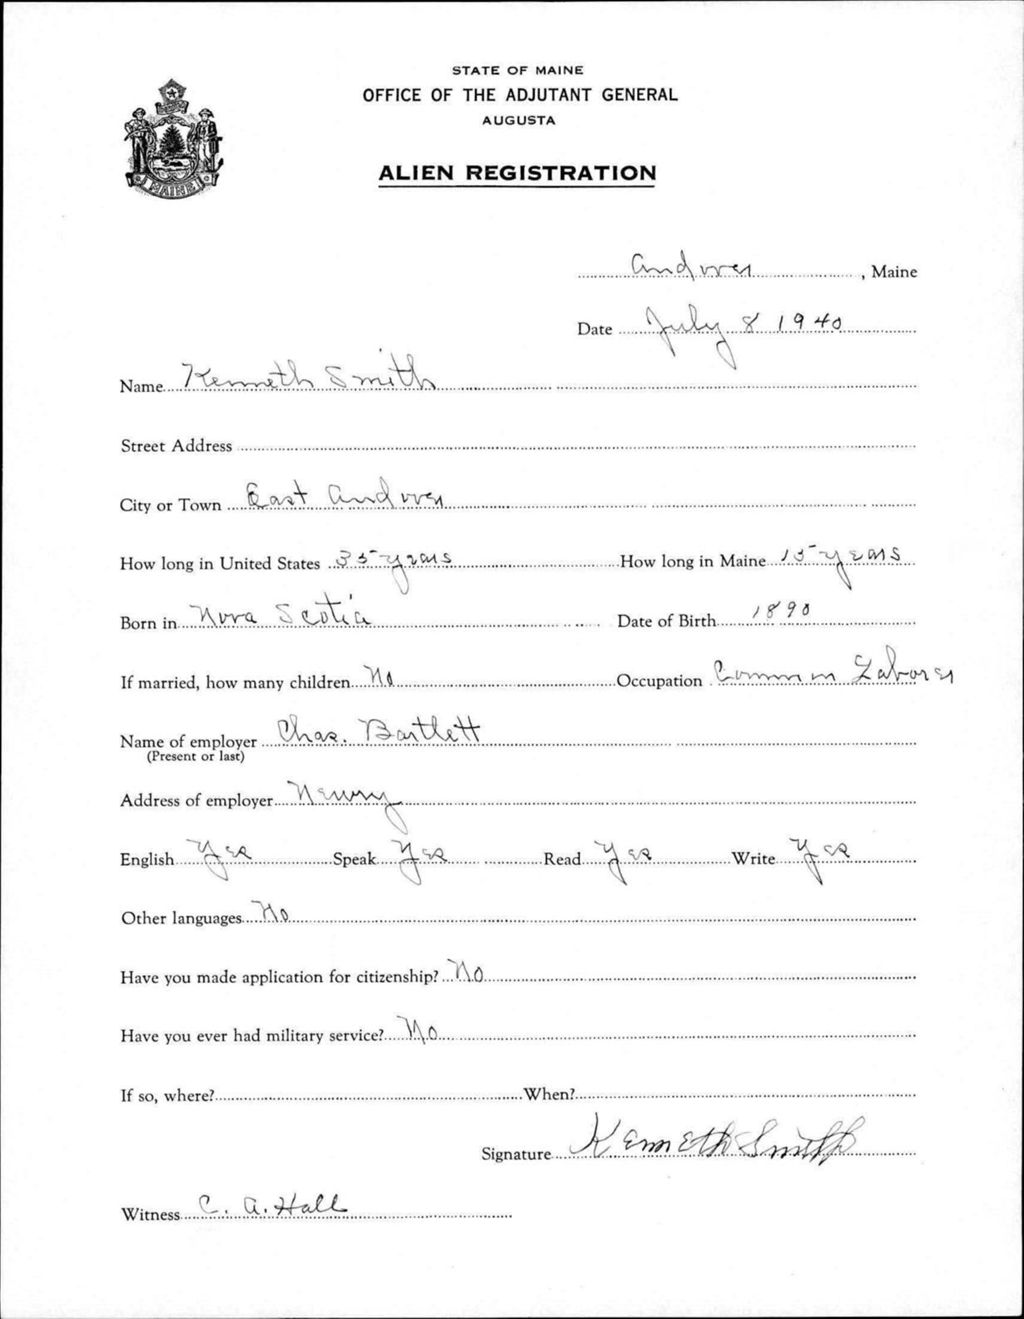 STATE OF MAINE
OFFICE OF THE ADJUTANT GENERAL
AUGUSTA
ALIEN REGISTRATION
MAINE
Andover, Maine
Date July 8 1940
Name Kenneth Smith
Street Address
City or Town East Andover
How long in United States 35 years How long in Maine 15 years
Born in Nova Scotia Date of Birth 1890
If married, how many children No Occupation Common Laborer
Name of employer Chas. Bartlett
(Present or last)
Address of employer Newry
English Yes Speak Yes Read Yes Write Yes
Other languages No
Have you made application for citizenship? No
Have you ever had military service? No
If so, where? When?
Signature Kenneth Smith
Witness C. A. Hall